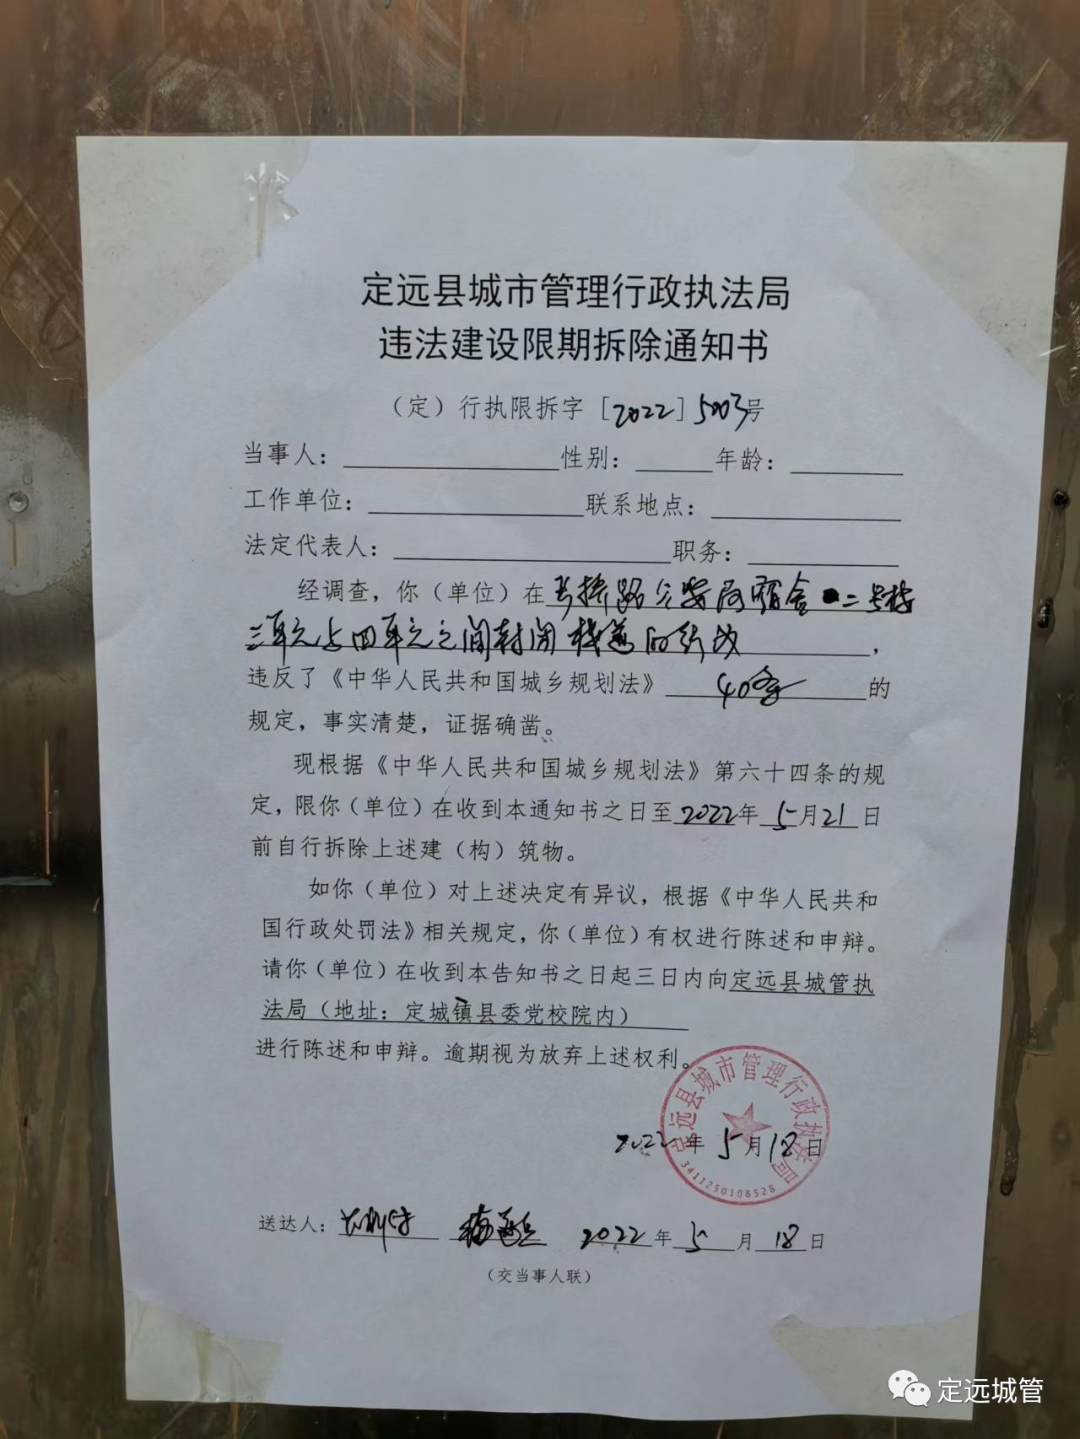 定远县城市管理行政执法局
违法建设限期拆除通知书
（定）行执限拆字［2022］5003号
当事人：性别：年龄：
工作单位：联系地点：
法定代表人：职务：
经调查，你（单位）在 路公安局宿舍二号楼
三单元与四单元之间封闭 的 ，
违反了《中华人民共和国城乡规划法》40条的
规定，事实清楚，证据确凿。
现根据《中华人民共和国城乡规划法》第六十四条的规
定，限你（单位）在收到本通知书之日至2022年5月21日
前自行拆除上述建（构）筑物。
如你（单位）对上述决定有异议，根据《中华人民共和
国行政处罚法》相关规定，你（单位）有权进行陈述和申辩。
请你（单位）在收到本告知书之日起三日内向定远县城管执
法局（地址：定城镇县委党校院内）
进行陈述和申辩。逾期视为放弃上述权利。
定远县城市管理行政执法局
2022年5月18日
3411250108528
送达人： 2022年5月18日
（交当事人联）
定远城管